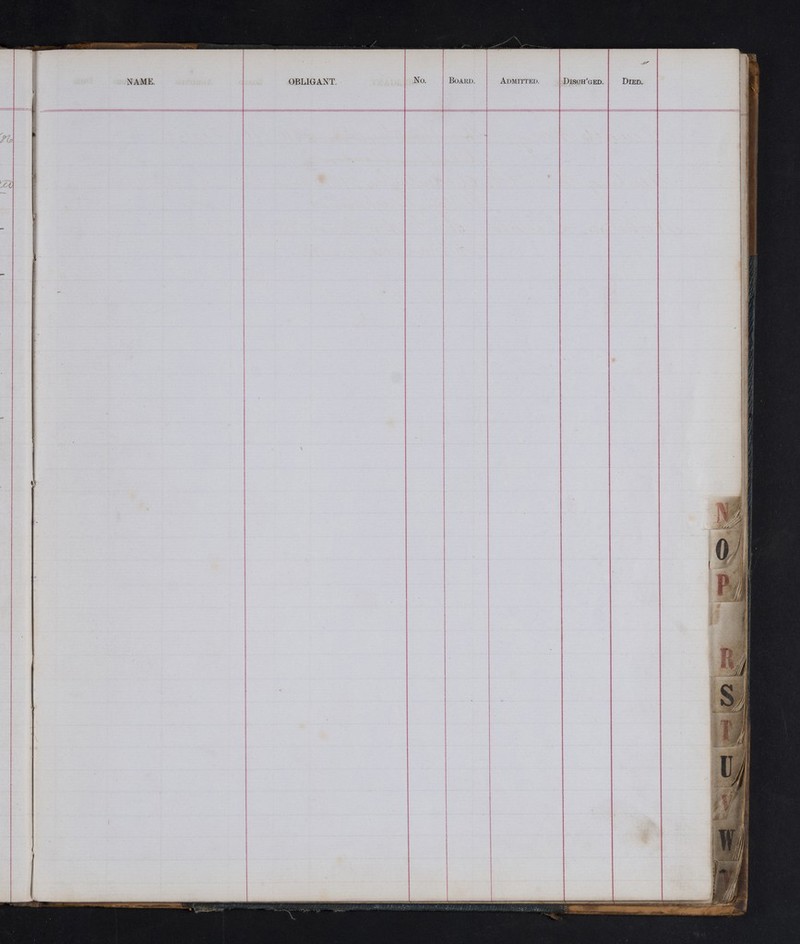 NAME. OBLIGANT. No. BOARD. ADMITTED. DISCH'GED. DIED.
N
O
P
R
S
T
U
V
W